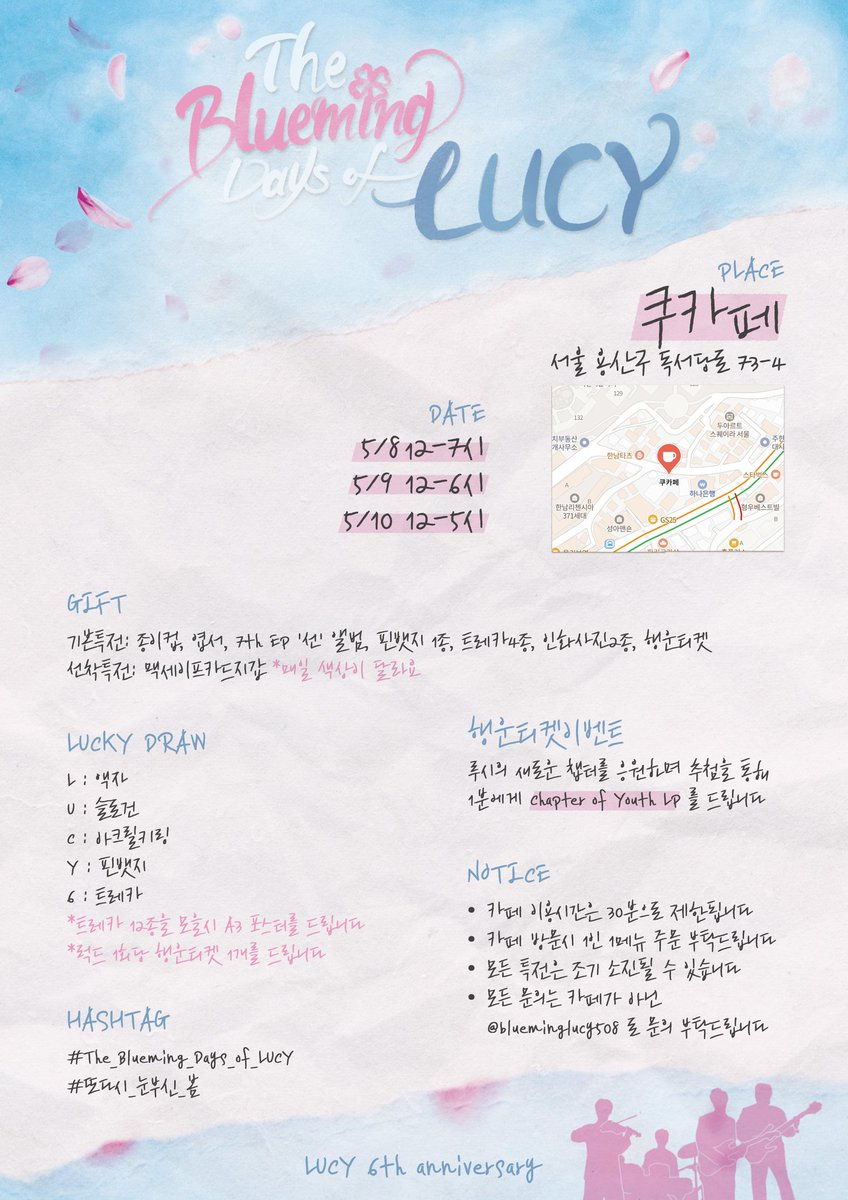 The
Blueming
Days of LUCY
PLACE
쿠카페
서울 용산구 독서당로 73-4
DATE
5/8 12-7시
5/9 12-6시
5/10 12-5시
129
132
두아르트
스퀘이라 서울
지부동산
개사무소
한남타츠
쿠카페
하나은행
스타벅스
주한
대사
A
B
한남리첸시아
371세대
성아맨숀
GS25
청우베스트빌
B
A
GIFT
기본특전: 종이컵, 엽서, 7th EP '선' 앨범, 핀뱃지 1종, 트레카4종, 인화사진2종, 행운티켓
선착특전: 맥세이프카드지갑 *매일 색상이 달라요
LUCKY DRAW
L : 액자
U : 슬로건
C : 아크릴키링
Y : 핀뱃지
6 : 트레카
*트레카 12종을 모을시 A3 포스터를 드립니다
*럭드 1회당 행운티켓 1개를 드립니다
행운티켓이벤트
루시의 새로운 챕터를 응원하며 추첨을 통해
1분에게 Chapter of Youth LP 를 드립니다
NOTICE
• 카페 이용시간은 30분으로 제한됩니다
• 카페 방문시 1인 1메뉴 주문 부탁드립니다
• 모든 특전은 조기 소진될 수 있습니다
• 모든 문의는 카페가 아닌
@blueminglucy508 로 문의 부탁드립니다
HASHTAG
#The_Blueming_Days_of_LUCY
#또다시_눈부신_봄
LUCY 6th anniversary